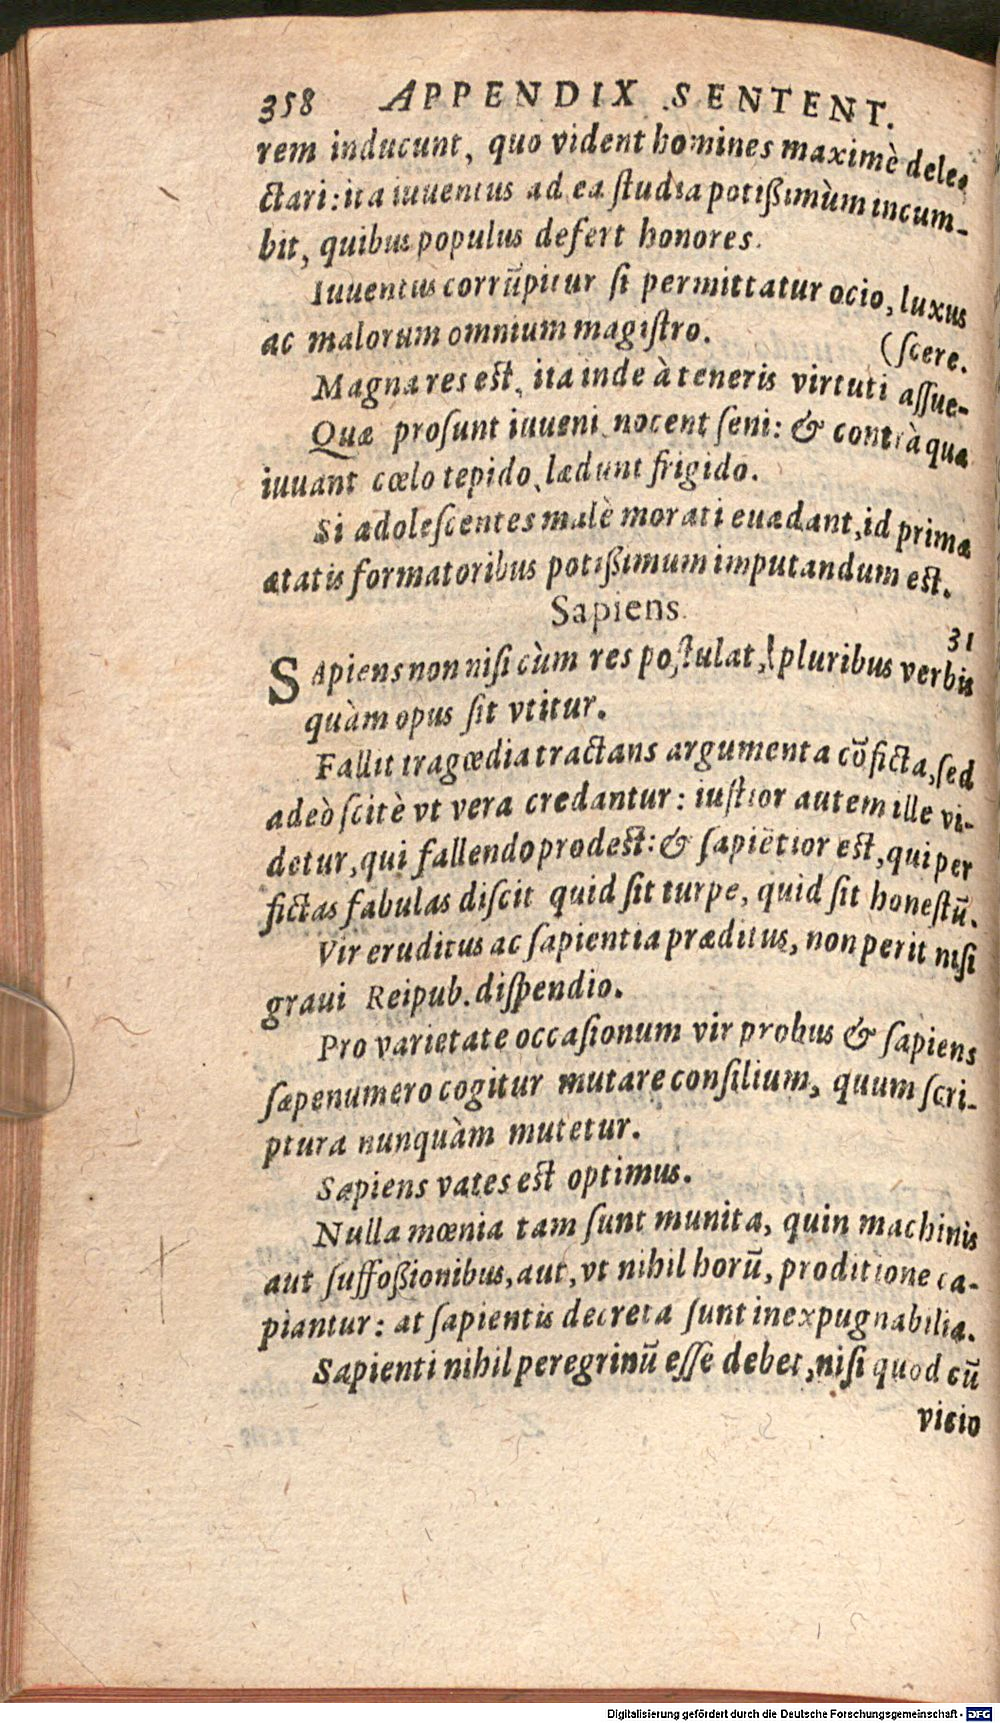 358 APPENDIX SENTENT.
rem inducunt, quo vident homines maximè dele-
ctari: ita iuuentus ad ea ſtudia potißimùm incum-
bit, quibus populus defert honores.
Iuuentus corrũpitur ſi permittatur ocio, luxus
ac malorum omnium magiſtro. (ſcere.
Magna res est, ita inde à teneris virtuti aſſue-
Quæ proſunt iuueni, nocent ſeni: & contrà quæ
iuuant cœlo tepido, lædunt frigido.
Si adoleſcentes malè morati euadant, id primæ
ætatis formatoribus potißimum imputandum est.
Sapiens.
31
SApiens non niſi cùm res poſtulat, pluribus verbis
quàm opus ſit vtitur.
Fallit tragœdia tractans argumenta cõficta, ſed
adeò ſcitè vt vera credantur: iuſtior autem ille vi-
detur, qui fallendo prodest: & ſapiẽtior est, qui per
fictas fabulas diſcit quid ſit turpe, quid ſit honeſtũ.
Vir eruditus ac ſapientia præditus, non perit niſi
graui Reipub. diſpendio.
Pro varietate occaſionum vir probus & ſapiens
ſæpenumero cogitur mutare conſilium, quum ſcri-
ptura nunquàm mutetur.
Sapiens vates est optimus.
Nulla mœnia tam ſunt munita, quin machinis
aut ſuffoßionibus, aut, vt nihil horũ, proditione ca-
piantur: at ſapientis decreta ſunt inexpugnabilia.
Sapienti nihil peregrinũ eſſe debet, niſi quod cũ
vicio
Digitalisierung gefördert durch die Deutsche Forschungsgemeinschaft - DFG